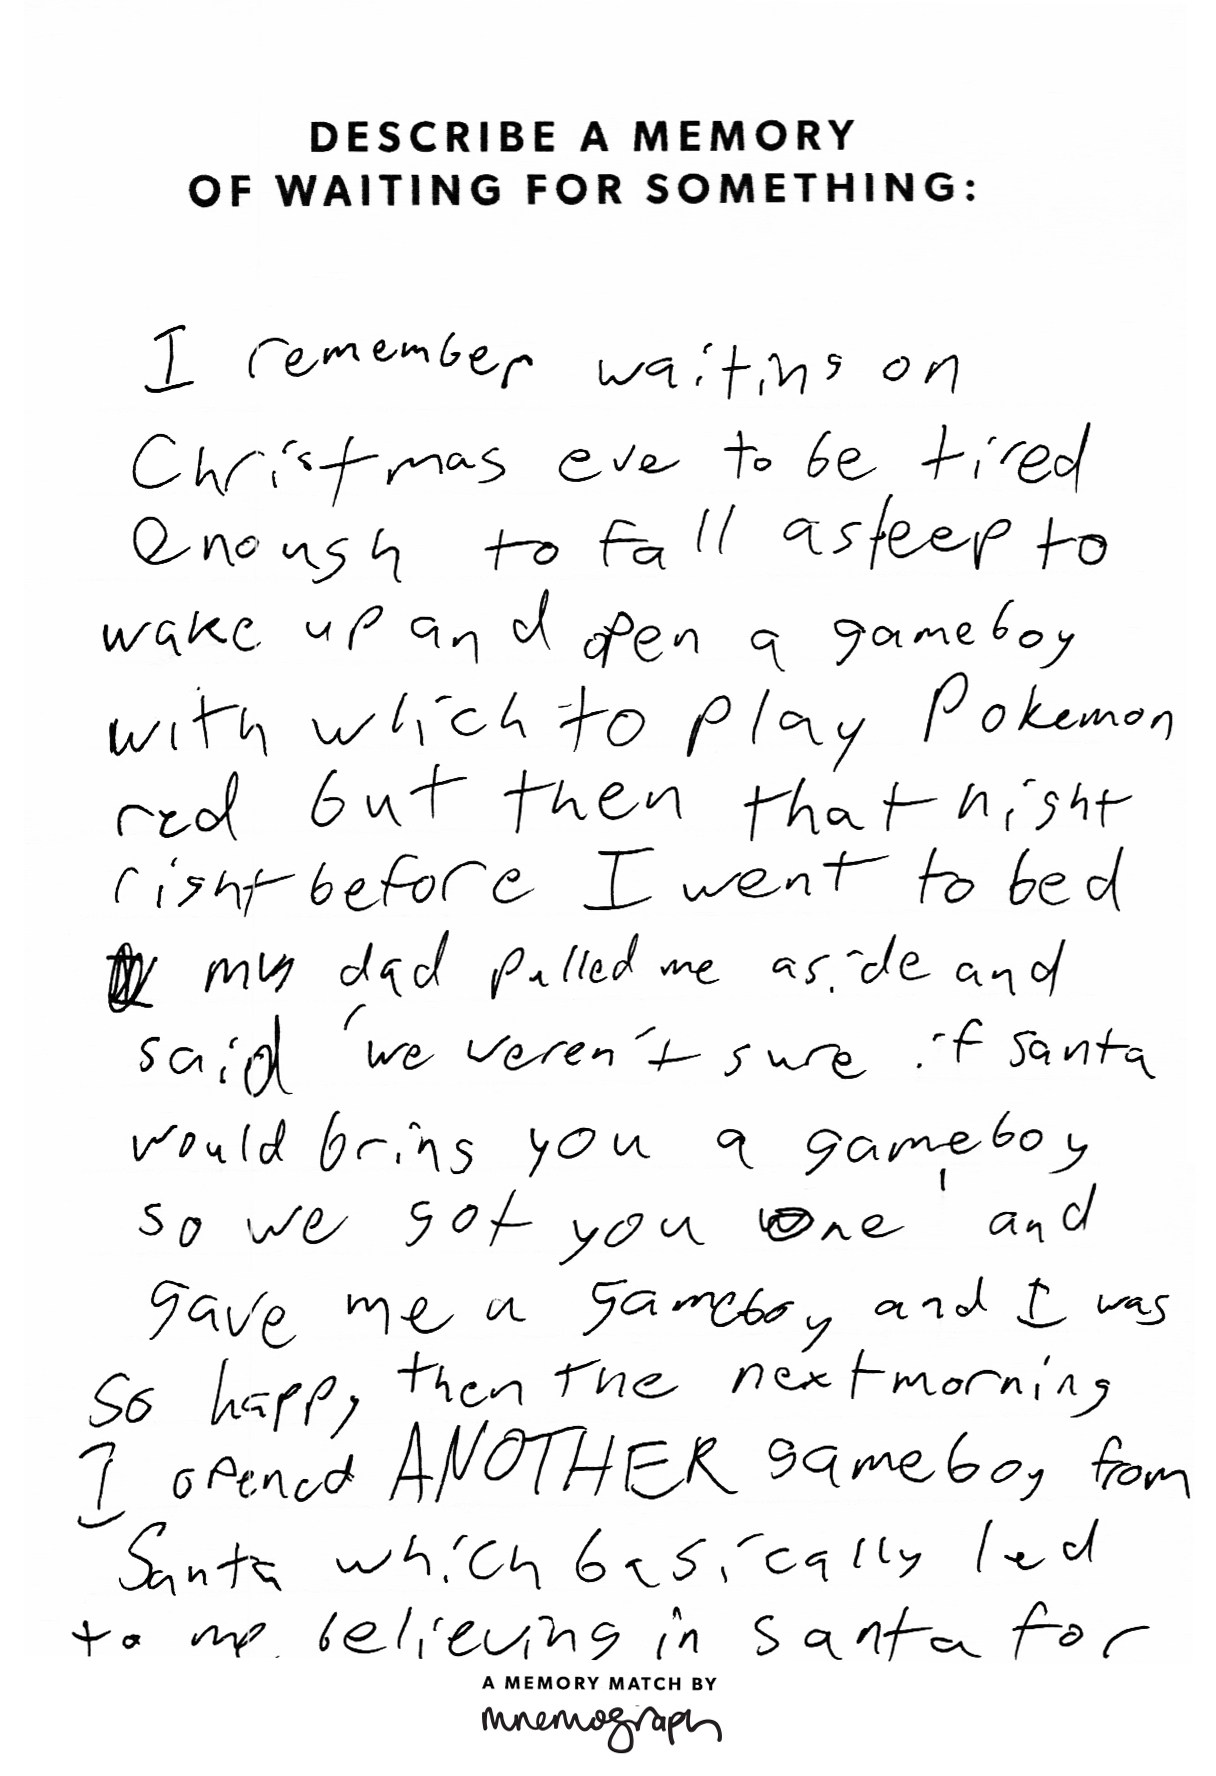 DESCRIBE A MEMORY
OF WAITING FOR SOMETHING:
I remember waiting on
Christmas eve to be tired
enough to fall asleep to
wake up and open a gameboy
with which to play Pokemon
red but then that night
right before I went to bed
my dad pulled me aside and
said 'we weren't sure if santa
would bring you a gameboy
so we got you one' and
gave me a gameboy and I was
so happy then the next morning
I opened ANOTHER gameboy from
Santa which basically led
to me believing in santa for
A MEMORY MATCH BY
mnemograph